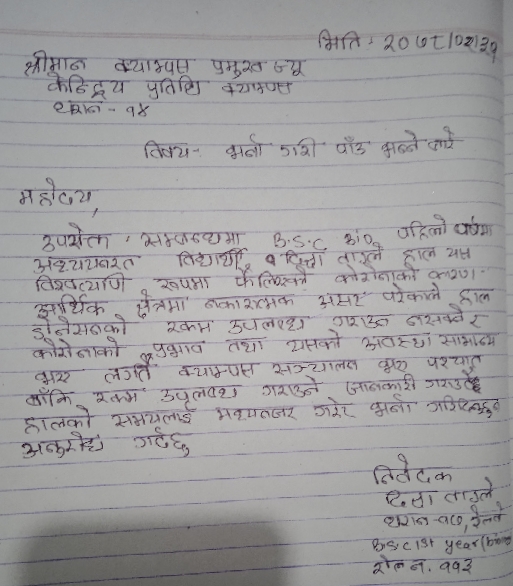 मिति : २०७८/०२/३१
श्रीमान क्याम्पस प्रमुख ज्यू
केन्द्रिय प्रविधि क्याम्पस
धरान - १४
विषय - भर्ना गरी पाँउ भन्ने बारे
महोदय,
उपरोक्त सम्बन्धमा B.S.C पहिलो वर्षमा
अध्ययनरत विद्यार्थी हाल यस
विश्वव्यापि रूपमा फैलिएको कोरोनाको कारण
आर्थिक क्षेत्रमा नकारत्मक असर परेकाले हाल
डोनेसनको रकम उपलब्ध गराउन नसकेर
कोरोनाको प्रभाव तथा यसको अवस्था सामान्य
भए लगतै क्याम्पस सञ्चालन भए पश्चात
बाँकि रकम उपलब्ध गराउने जानकारी गराउदै
हालको समयलाई मध्यनजर गरेर भर्ना गरिदिनुहुन
अनुरोध गर्दछु
निवेदक
धरान-१७,
B.Sc 1st year
रोल न. ११३